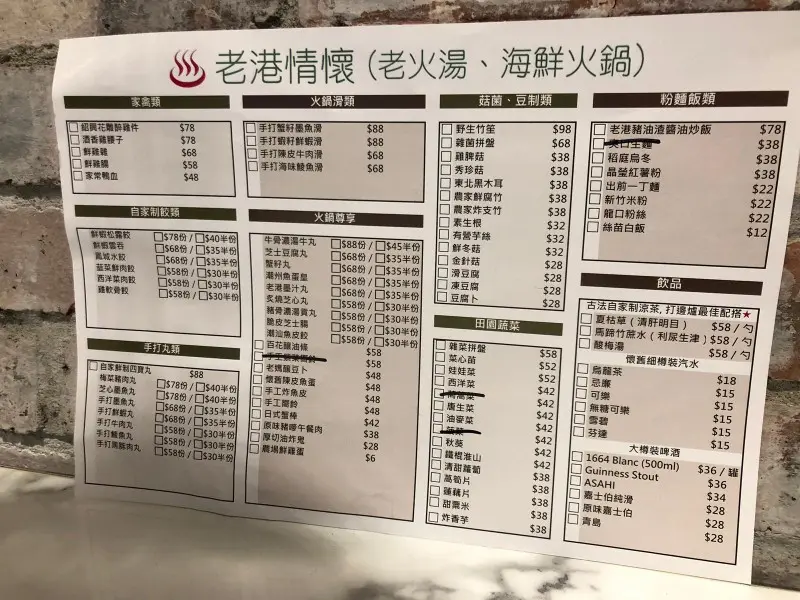 老港情懷(老火湯、海鮮火鍋)
家禽類
紹興花雕醉雞件 $78
酒香雞腰子 $78
鮮雞雜 $68
鮮雞腸 $58
家常鴨血 $48
自家制餃類
鮮蝦松露餃 $78/份 / $40半份
鮮蝦雲吞 $68/份 / $35半份
鳳城水餃 $68/份 / $35半份
韮菜鮮肉餃 $58/份 / $30半份
西洋菜肉餃 $58/份 / $30半份
雞軟骨餃 $58/份 / $30半份
手打丸類
自家鮮制四寶丸 $88
梅菜豬肉丸 $78/份 / $40半份
芝心墨丸 $78/份 / $40半份
手打墨魚丸 $68/份 / $35半份
手打鮮蝦丸 $68/份 / $35半份
手打牛肉丸 $58/份 / $30半份
手打鯪魚丸 $58/份 / $30半份
手打馬蹄肉丸 $58/份 / $30半份
火鍋滑類
手打蟹籽墨魚滑 $88
手打蝦籽鮮蝦滑 $88
手打陳皮牛肉滑 $68
手打海味鯪魚滑 $68
火鍋尊享
牛骨濃湯牛丸 $88份 / $45半份
芝士豆腐丸 $68/份 / $35半份
蟹籽丸 $68/份 / $35半份
潮州魚蛋皇 $68/份 / $35半份
老港墨汁丸 $68/份 / $35半份
炙燒芝心丸 $58/份 / $30半份
豬骨濃湯貢丸 $58/份 / $30半份
脆皮芝士腸 $58/份 / $30半份
潮汕魚皮餃 $58/份 / $30半份
百花釀油條 $58
$58
老媽釀豆卜 $58
懷舊陳皮魚蛋 $48
手工炸魚皮 $48
手工響鈴 $48
日式蟹棒 $42
原味豬嘜午餐肉 $38
厚切油炸鬼 $28
農場鮮雞蛋 $6
菇菌、豆制類
野生竹笙 $98
雜菌拼盤 $68
雞脾菇 $38
秀珍菇 $38
東北黑木耳 $38
農家鮮腐竹 $38
農家炸支竹 $38
素生根 $32
有營芋絲 $32
鮮冬菇 $32
金針菇 $28
滑豆腐 $28
凍豆腐 $28
豆腐卜 $28
田園蔬菜
雜菜拼盤 $58
菜心苗 $52
娃娃菜 $52
西洋菜 $42
$42
唐生菜 $42
油麥菜 $42
$42
秋葵 $42
鐵棍淮山 $42
清甜蘿蔔 $38
萵筍片 $38
蓮藕片 $38
甜粟米 $38
炸香芋 $38
粉麵飯類
老港豬油渣醬油炒飯 $78
爽口生麵 $38
稻庭烏冬 $38
晶瑩紅薯粉 $38
出前一丁麵 $22
新竹米粉 $22
龍口粉絲 $22
絲苗白飯 $12
飲品
古法自家制涼茶,打邊爐最佳配搭★
夏枯草(清肝明目) $58 / 勺
馬蹄竹蔗水(利尿生津) $58 / 勺
酸梅湯 $58 / 勺
懷舊細樽裝汽水
烏龍茶 $18
忌廉 $15
可樂 $15
無糖可樂 $15
雪碧 $15
芬達 $15
大樽裝啤酒
1664 Blanc (500ml) $36 / 罐
Guinness Stout $36
ASAHI $34
嘉士伯純滑 $28
原味嘉士伯 $28
青島 $28